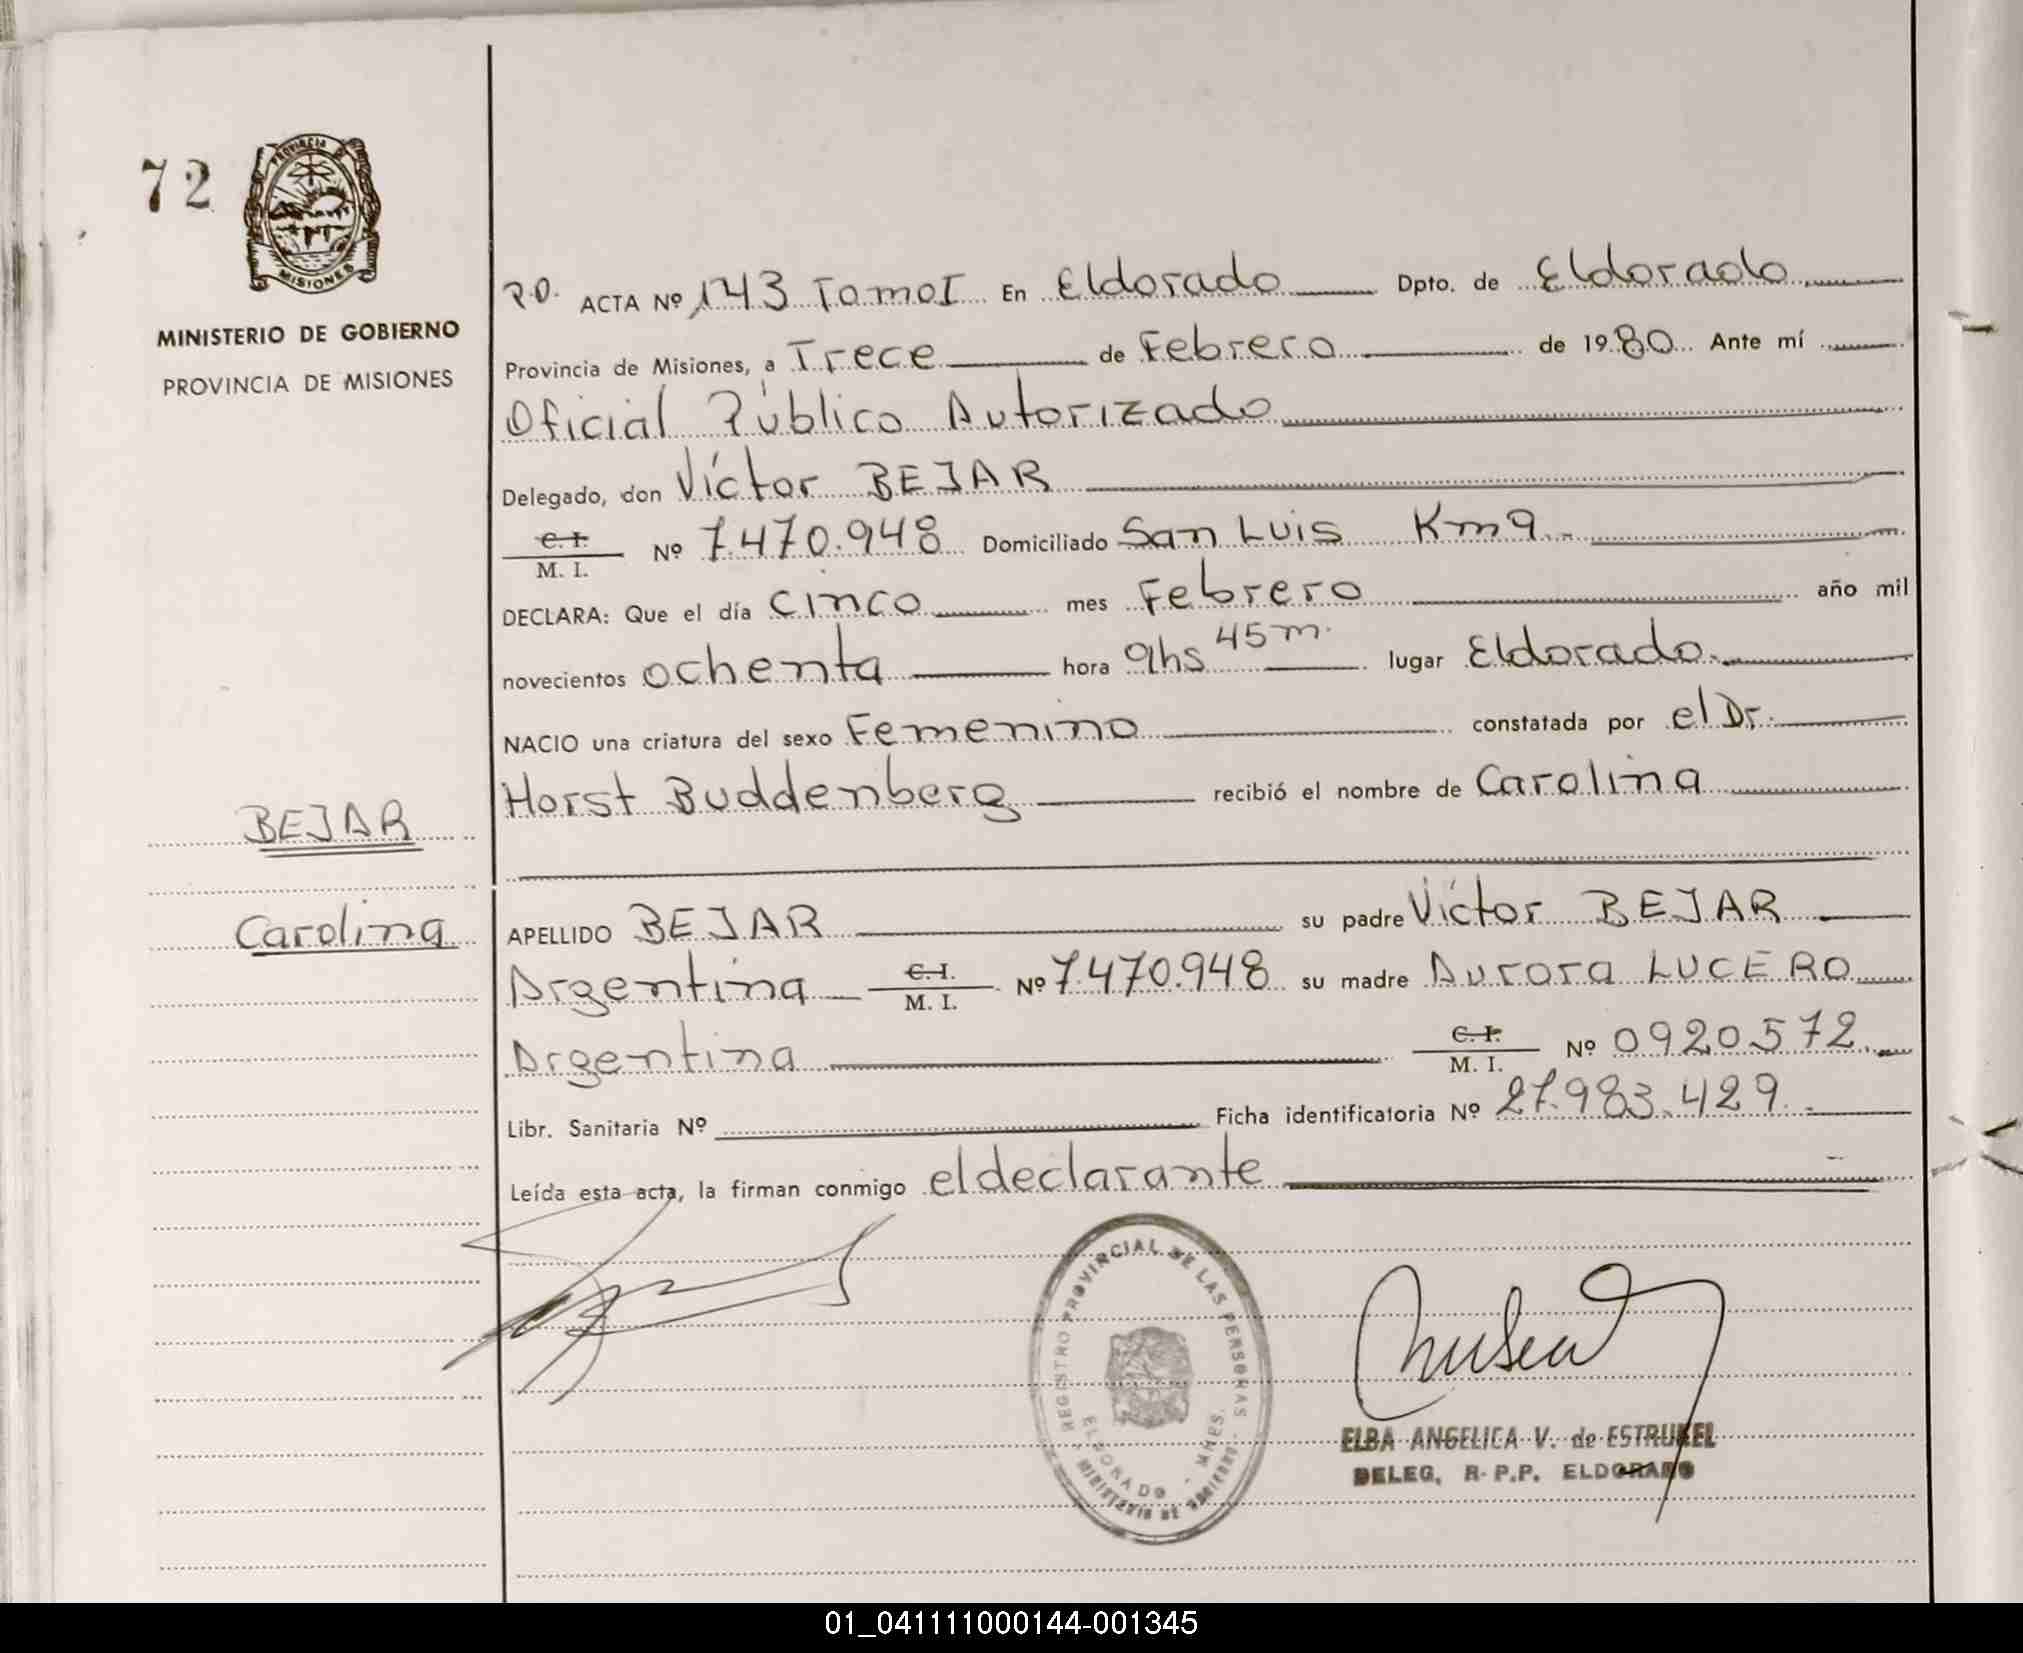 72
PROVINCIA DE
MISIONES
MINISTERIO DE GOBIERNO
PROVINCIA DE MISIONES
BEJAR
Carolina
P.D. ACTA Nº 143 Tomo I En Eldorado Dpto. de Eldorado
Provincia de Misiones, a Trece de Febrero de 1980 Ante mí
Oficial Público Autorizado
Delegado, don Víctor BEJAR
C. I.
M. I. Nº 7.470.948 Domiciliado San Luis Km 9.-
DECLARA: Que el día cinco mes Febrero año mil
novecientos ochenta hora 9hs 45m. lugar Eldorado.
NACIO una criatura del sexo Femenino constatada por el Dr.
Horst Buddenberg recibió el nombre de Carolina
APELLIDO BEJAR su padre Víctor BEJAR
Argentina C. I. M. I. Nº 7.470.948 su madre Aurora LUCERO
Argentina C. I. M. I. Nº 0920572.
Libr. Sanitaria Nº Ficha identificatoria Nº 27.983.429.
Leída esta acta, la firman conmigo el declarante
REGISTRO PROVINCIAL DE LAS PERSONAS
ELDORADO - MNES.
MINISTERIO DE GOBIERNO
ELBA ANGELICA V. de ESTRUKEL
DELEG, R. P.P. ELDORADO
01_041111000144-001345